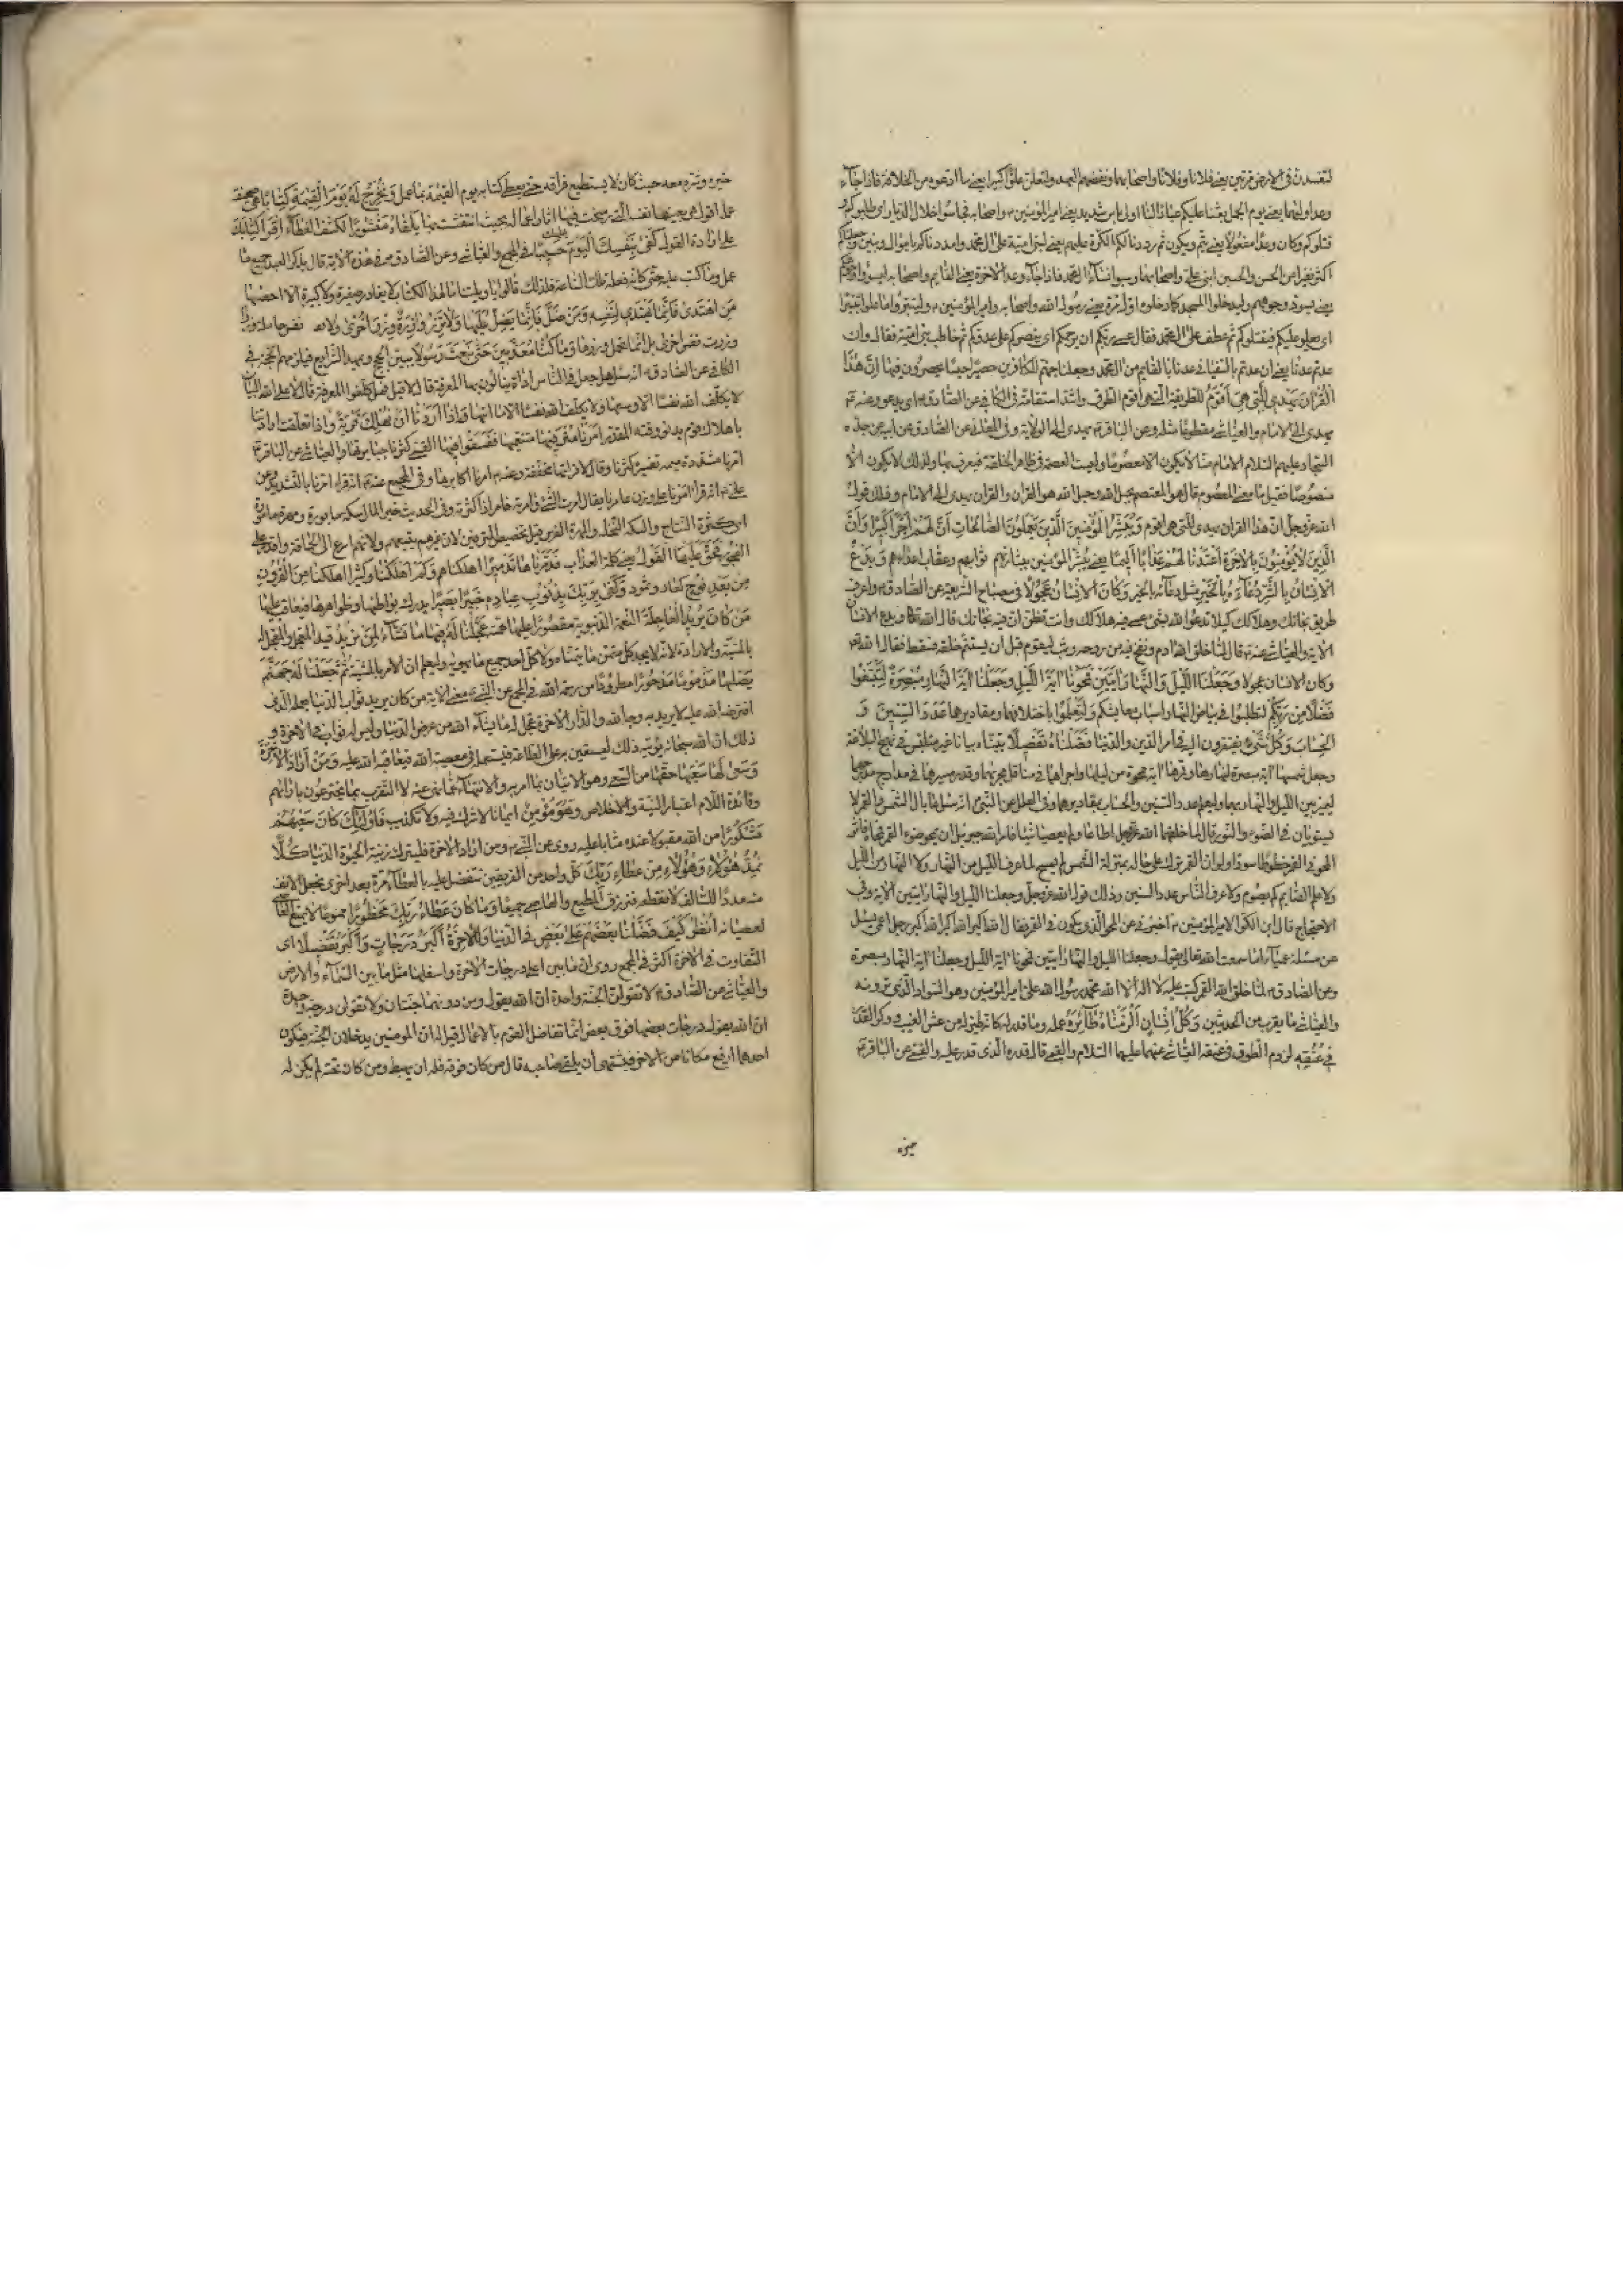 لتفسدن في الارض مرتين يعني فلانا وفلانا واصحابهما ونقضهم العهد ولتعلن علوا كبيرا يعني ما ادعوه من الخلافة فاذا جاء
وعد اوليهما يعني يوم الجمل بعثنا عليكم عبادا لنا اولي باس شديد يعني امير المؤمنين واصحابه فجاسوا خلال الديار اي طلبوكم و
قتلوكم وكان وعدا مفعولا يعني يتم ويكون ثم رددنا لكم الكرة عليهم يعني لبني امية على ال محمد وامددناكم باموال وبنين وجعلناكم
اكثر نفيرا من الحسن والحسين ابني علي واصحابهما وسبوا نساء ال محمد فاذا جاء وعد الاخرة يعني القايم واصحابه ليسوؤا وجوهكم
يعني يسود وجوههم وليدخلوا المسجد كما دخلوه اول مرة يعني رسول الله واصحابه وامير المؤمنين وليتبروا ما علوا تتبيرا
اي يعلو عليكم فيقتلوكم ثم عطف على ال محمد فقال عسى ربكم ان يرحمكم اي ينصركم على عدوكم ثم خاطب بني امية فقال وان
عدتم عدنا يعني ان عدتم بالسفياني عدنا بالقايم من ال محمد وجعلنا جهنم للكافرين حصيرا حبسا يحصرون فيها ان هذا
القران يهدي للتي هي اقوم للطريقة التي هي اقوم الطرق واشد استقامة في الكافي عن الصادق اي يدعو وعنه
يهدي الى الامام والعياشي مقطوعا مثله وعن الباقر يهدي الى الولاية وفي المعاني عن الصادق عن ابيه عن جده
السجاد عليهم السلام الامام منا لا يكون الا معصوما وليست العصمة في ظاهر الخلقة فيعرف بها ولذلك لا يكون الا
منصوصا فقيل ما معنى المعصوم قال هو المعتصم بحبل الله وحبل الله هو القران والقران يهدي الى الامام وذلك قول
الله عز وجل ان هذا القران يهدي للتي هي اقوم ويبشر المؤمنين الذين يعملون الصالحات ان لهم اجرا كبيرا وان
الذين لا يؤمنون بالاخرة اعتدنا لهم عذابا اليما يعني يبشر المؤمنين ببشارتهم ثوابهم وعقاب اعدائهم ويدع
الانسان بالشر دعاءه بالخير مثل دعائه بالخير وكان الانسان عجولا في مصباح الشريعة عن الصادق واعرف
طريق نجاتك وهلاكك كيلا تدعو الله بشيء عسى فيه هلاكك وانت تظن ان فيه نجاتك قال الله تعالى ويدع الانسان
الاية والعياشي عنه قال لما خلق الله ادم ونفخ فيه من روحه وثب ليقوم قبل ان يستتم خلقه فسقط فقال الله
وكان الانسان عجولا وجعلنا الليل والنهار ايتين فمحونا اية الليل وجعلنا اية النهار مبصرة لتبتغوا
فضلا من ربكم لتطلبوا في بياض النهار اسباب معايشكم ولتعلموا باختلافهما ومقاديرهما عدد السنين و
الحساب وكل شيء تفتقرون اليه في امر الدين والدنيا فصلناه تفصيلا بيناه بيانا غير ملتبس في نهج البلاغة
وجعل شمسها اية مبصرة لنهارها وقمرها اية ممحوة من ليلها واجراهما في مناقل مجريهما وقدر مسيرهما في مدارج
ليميز بين الليل والنهار بهما وليعلم عدد السنين والحساب بمقاديرهما وفي العلل عن النبي انه سئل ما بال الشمس والقمر لا
يستويان في الضوء والنور قال لما خلقهما الله عز وجل اطاعا ولم يعصيا شيئا فامر الله جبرئيل ان يمحو ضوء القمر فمحاه فاثر
المحو في القمر خطوطا سوداء ولو ان القمر ترك على حاله بمنزلة الشمس لم يمح لما عرف الليل من النهار ولا النهار من الليل
ولا علم الصايم كم يصوم ولا عرف الناس عدد السنين وذلك قول الله عز وجل وجعلنا الليل والنهار ايتين الاية وفي
الاحتجاج قال ابن الكوا لامير المؤمنين اخبرني عن المحو الذي يكون في القمر فقال الله اكبر الله اكبر الله اكبر رجل اعمى يسئل
عن مسئلة عمياء اما سمعت الله تعالى يقول وجعلنا الليل والنهار ايتين فمحونا اية الليل وجعلنا اية النهار مبصرة
وعن الصادق لما خلق الله القمر كتب عليه لا اله الا الله محمد رسول الله علي امير المؤمنين وهو السواد الذي ترونه
والعياشي ما يقرب من الحديثين وكل انسان الزمناه طائره عمله وما قدر له كانه طير له من عش الغيب ووكر القدر
في عنقه لزوم الطوق في عنقه العياشي عنهما عليهما السلام والقمي قال قدره الذي قدر عليه والقمي عن الباقر
خيره
خيره وشره معه حيث كان لا يستطيع فراقه حتى يعطى كتابه يوم القيمة بما عمل ونخرج له يوم القيمة كتابا هي صحيفة
عمله اقول هي بعينها نفسه التي رسخت فيها اثار اعماله بحيث انتقشت بها يلقاه منشورا لكشف الغطاء اقرا كتابك
على ارادة القول كفى بنفسك اليوم عليك حسيبا في المجمع والعياشي وعن الصادق في هذه الاية قال يذكر العبد جميع ما
عمل وما كتب عليه حتى كانه فعله تلك الساعة فلذلك قالوا يا ويلتنا ما لهذا الكتاب لا يغادر صغيرة ولا كبيرة الا احصيها
من اهتدى فانما يهتدي لنفسه ومن ضل فانما يضل عليها ولا تزر وازرة وزر اخرى ولا نفس حاملة وزرا
وزر نفس اخرى بل انما تحمل وزرها وما كنا معذبين حتى نبعث رسولا يبين الحجج ويمهد الشرايع فيلزمهم الحجة في
الكافي عن الصادق انه سئل هل جعل في الناس اداة ينالون بها المعرفة قال لا قيل فهل كلفوا المعرفة قال لا على الله البيان
لا يكلف الله نفسا الا وسعها ولا يكلف الله نفسا الا ما اتيها واذا اردنا ان نهلك قرية واذا تعلقت ارادتنا
باهلاك قوم بدنو وقته المقدر امرنا مترفيها متنعميها ففسقوا فيها القمي كثرنا جبابرتها والعياشي عن الباقر
امرنا مشددة ميمه تفسير كثرنا وقال لا قراتها مخففة وعنه امرنا اكابرها وفي المجمع عنه انه قرا امرنا بالتشديد وعن
علي انه قرا امرنا على وزن عامرنا يقال امرت الشيء وامرته فامر اذا كثرته وفي الحديث خير المال سكة مابورة ومهرة مامورة
اي كثيرة النتاج والسكة النخلة والمهرة الفرس قيل تخصيص المترفين لان غيرهم يتبعهم ولانهم اسرع الى الحماقة واقدر على
الفجور فحق عليها القول يعني كلمة العذاب فدمرناها تدميرا اهلكناهم وكم اهلكنا وكثيرا اهلكنا من القرون
من بعد نوح كعاد وثمود وكفى بربك بذنوب عباده خبيرا بصيرا يدرك بواطنها وظواهرها فيعاقب عليها
من كان يريد العاجلة النعمة الدنيوية مقصورا عليها همته عجلنا له فيها ما نشاء لمن نريد قيد المعجل والمعجل له
بالمشية والارادة لانه لا يجد كل متمن ما يتمناه ولا كل احد جميع ما يهويه وليعلم ان الامر بالمشية ثم جعلنا له جهنم
يصليها مذموما مدحورا مطرودا من رحمة الله في المجمع عن النبي معنى الاية من كان يريد ثواب الدنيا بعمله الذي
افترضه الله عليه لا يريد به وجه الله والدار الاخرة عجل له ما يشاء الله من عرض الدنيا وليس له ثواب في الاخرة و
ذلك ان الله سبحانه يؤتيه ذلك ليستعين به على الطاعة فيستعمله في معصية الله فيعاقبه الله عليه ومن اراد الاخرة
وسعى لها سعيها حقها من السعي وهو الاتيان بما امر به والانتهاء عما نهى عنه لا التقرب بما يخترعون بارائهم
وفائدة اللام اعتبار النية والاخلاص وهو مؤمن ايمانا لا شرك فيه ولا تكذيب فاولئك كان سعيهم
مشكورا من الله مقبولا عنده مثابا عليه روي عن النبي ومن اراد الاخرة فليترك زينة الحيوة الدنيا كلا
نمد هؤلاء وهؤلاء من عطاء ربك كل واحد من الفريقين نتفضل عليه بالعطاء مرة بعد اخرى نجعل الانف
منه مددا للسالف لا نقطعه فنرزق المطيع والعاصي جميعا وما كان عطاء ربك محظورا ممنوعا لا يمنع العاصي
لعصيانه انظر كيف فضلنا بعضهم على بعض في الدنيا وللاخرة اكبر درجات واكبر تفضيلا اي
التفاوت في الاخرة اكثر في المجمع روي ان ما بين اعلى درجات الاخرة واسفلها مثل ما بين السماء والارض
والعياشي عن الصادق لا تقولن الجنة واحدة ان الله يقول ومن دونهما جنتان ولا تقولن درجة واحدة
ان الله يقول درجات بعضها فوق بعض انما تفاضل القوم بالاعمال قيل له ان المومنين يدخلان الجنة فيكون
احدهما ارفع مكانا من الاخر فيشتهي ان يلقى صاحبه قال من كان فوقه فله ان يهبط ومن كان تحته لم يكن له